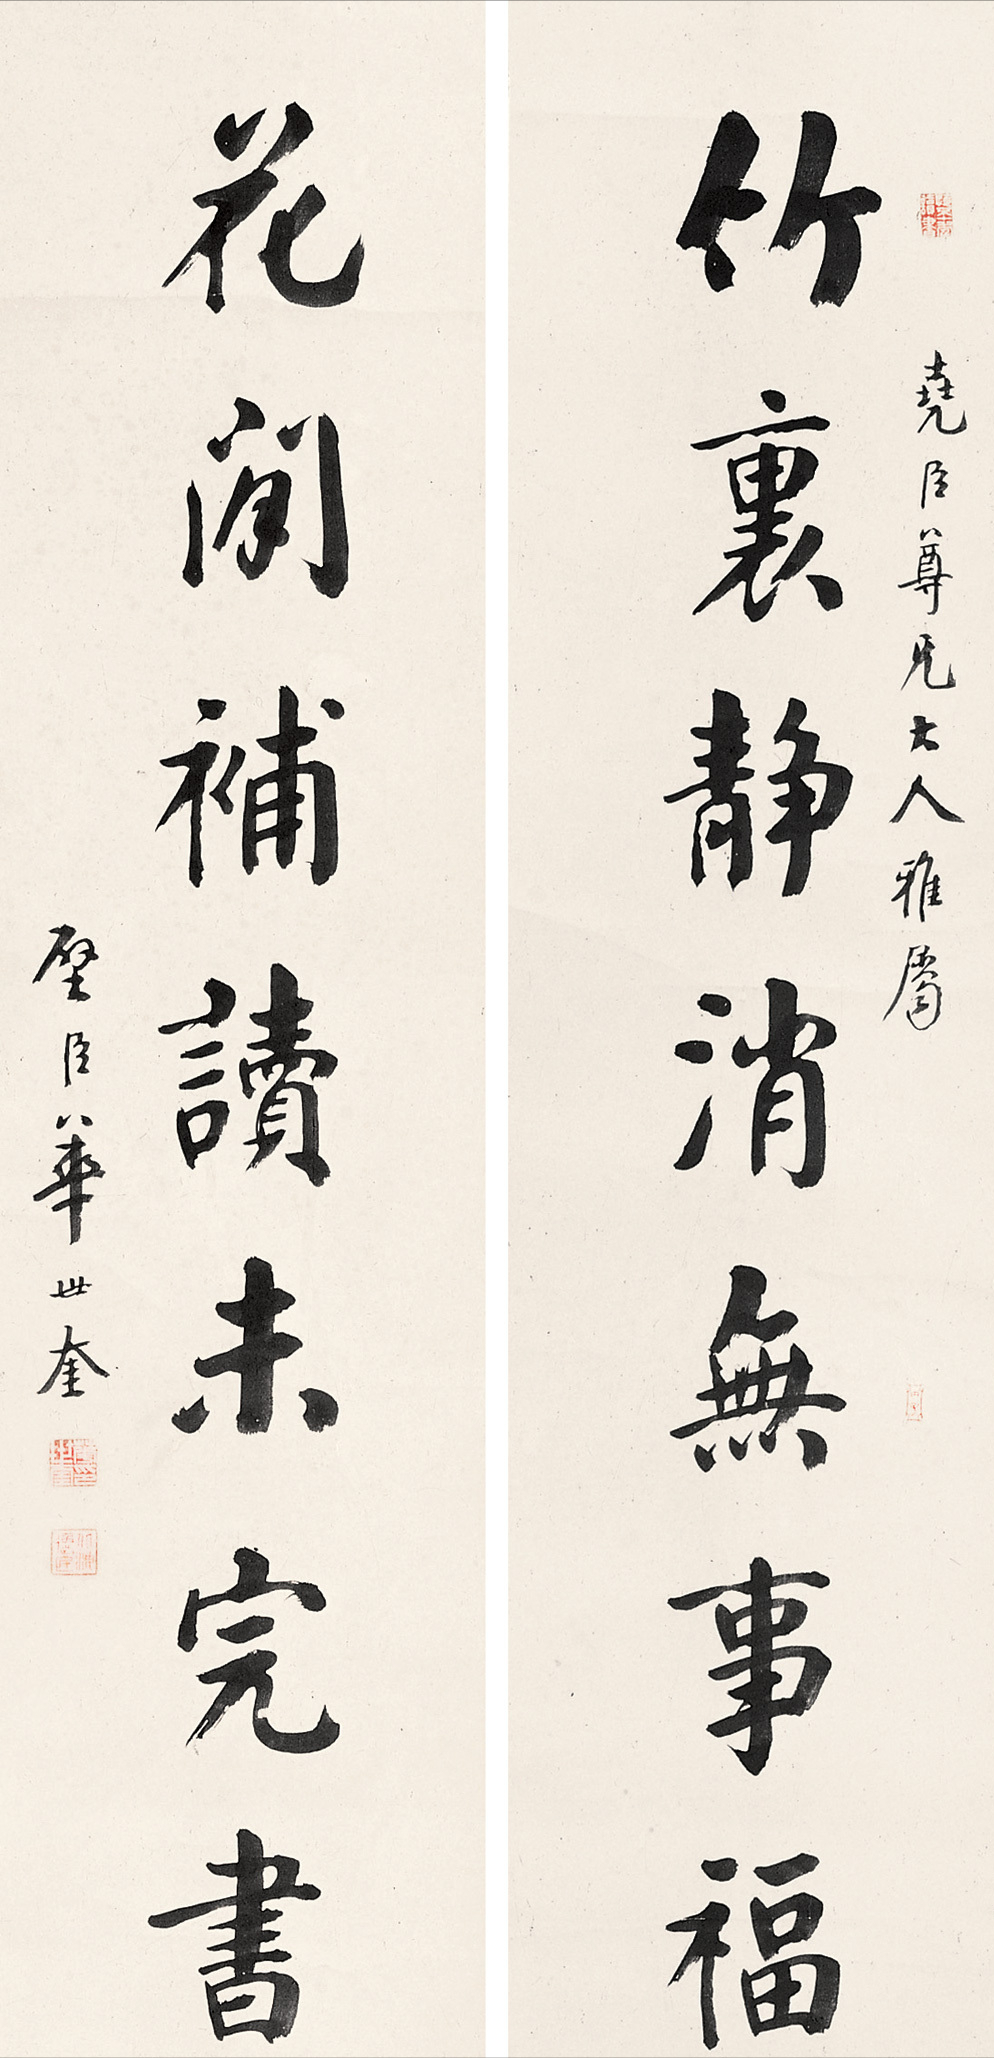 堯臣尊兄大人雅屬
竹裏静消無事福
花間補讀未完書
壁臣華世奎